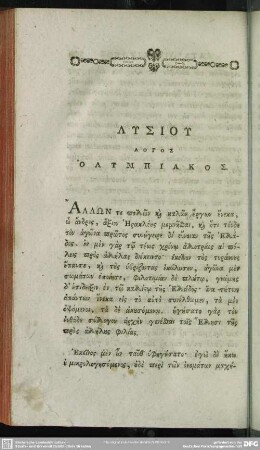 ΛΥΣΙΟΥ
ΛΟΓΟΣ
ὈΛΥΜΠΙΑΚΟΣ.
ἌΛΛΩΝ τε πολλῶν καὶ καλῶν ἔργων ἕνεκα,
ὦ ἄνδρες, ἄξιον Ἡρακλέους μεμνῆσθαι, καὶ ὅτι τόνδε
τὸν ἀγῶνα πρῶτος συνήγειρε δι' εὔνοιαν τῆς Ἑλλά-
δος. ἐν μὲν γὰρ τῷ τέως χρόνῳ ἀλλοτρίως αἱ πό-
λεις πρὸς ἀλλήλας διέκειντο· ἐκεῖνος τοὺς τυράννους
ἔπαυσε, καὶ τοὺς ὑβρίζοντας ἐκώλυσεν, ἀγῶνα μὲν
σωμάτων ἐποίησε, φιλοτιμίαν δὲ πλούτῳ, γνώμης
δ' ἐπίδειξιν ἐν τῷ καλλίστῳ τῆς Ἑλλάδος·
ἁπάντων ἕνεκα εἰς τὸ αὐτὸ συνέλθωμεν, τὰ μὲν
ὀψόμενοι, τὰ δὲ ἀκουσόμενοι. ἡγήσατο γὰρ τὸν
ἐνθάδε σύλλογον ἀρχὴν γενέσθαι τοῖς Ἕλλησι τῆς
πρὸς ἀλλήλους φιλίας.
Ἐκεῖνος μὲν οὖν ταῦθ' ὑφηγήσατο· ἐγὼ δὲ ἥκω
οὐ μικρολογησόμενος, οὐδὲ περὶ τῶν ὀνομάτων μαχού-